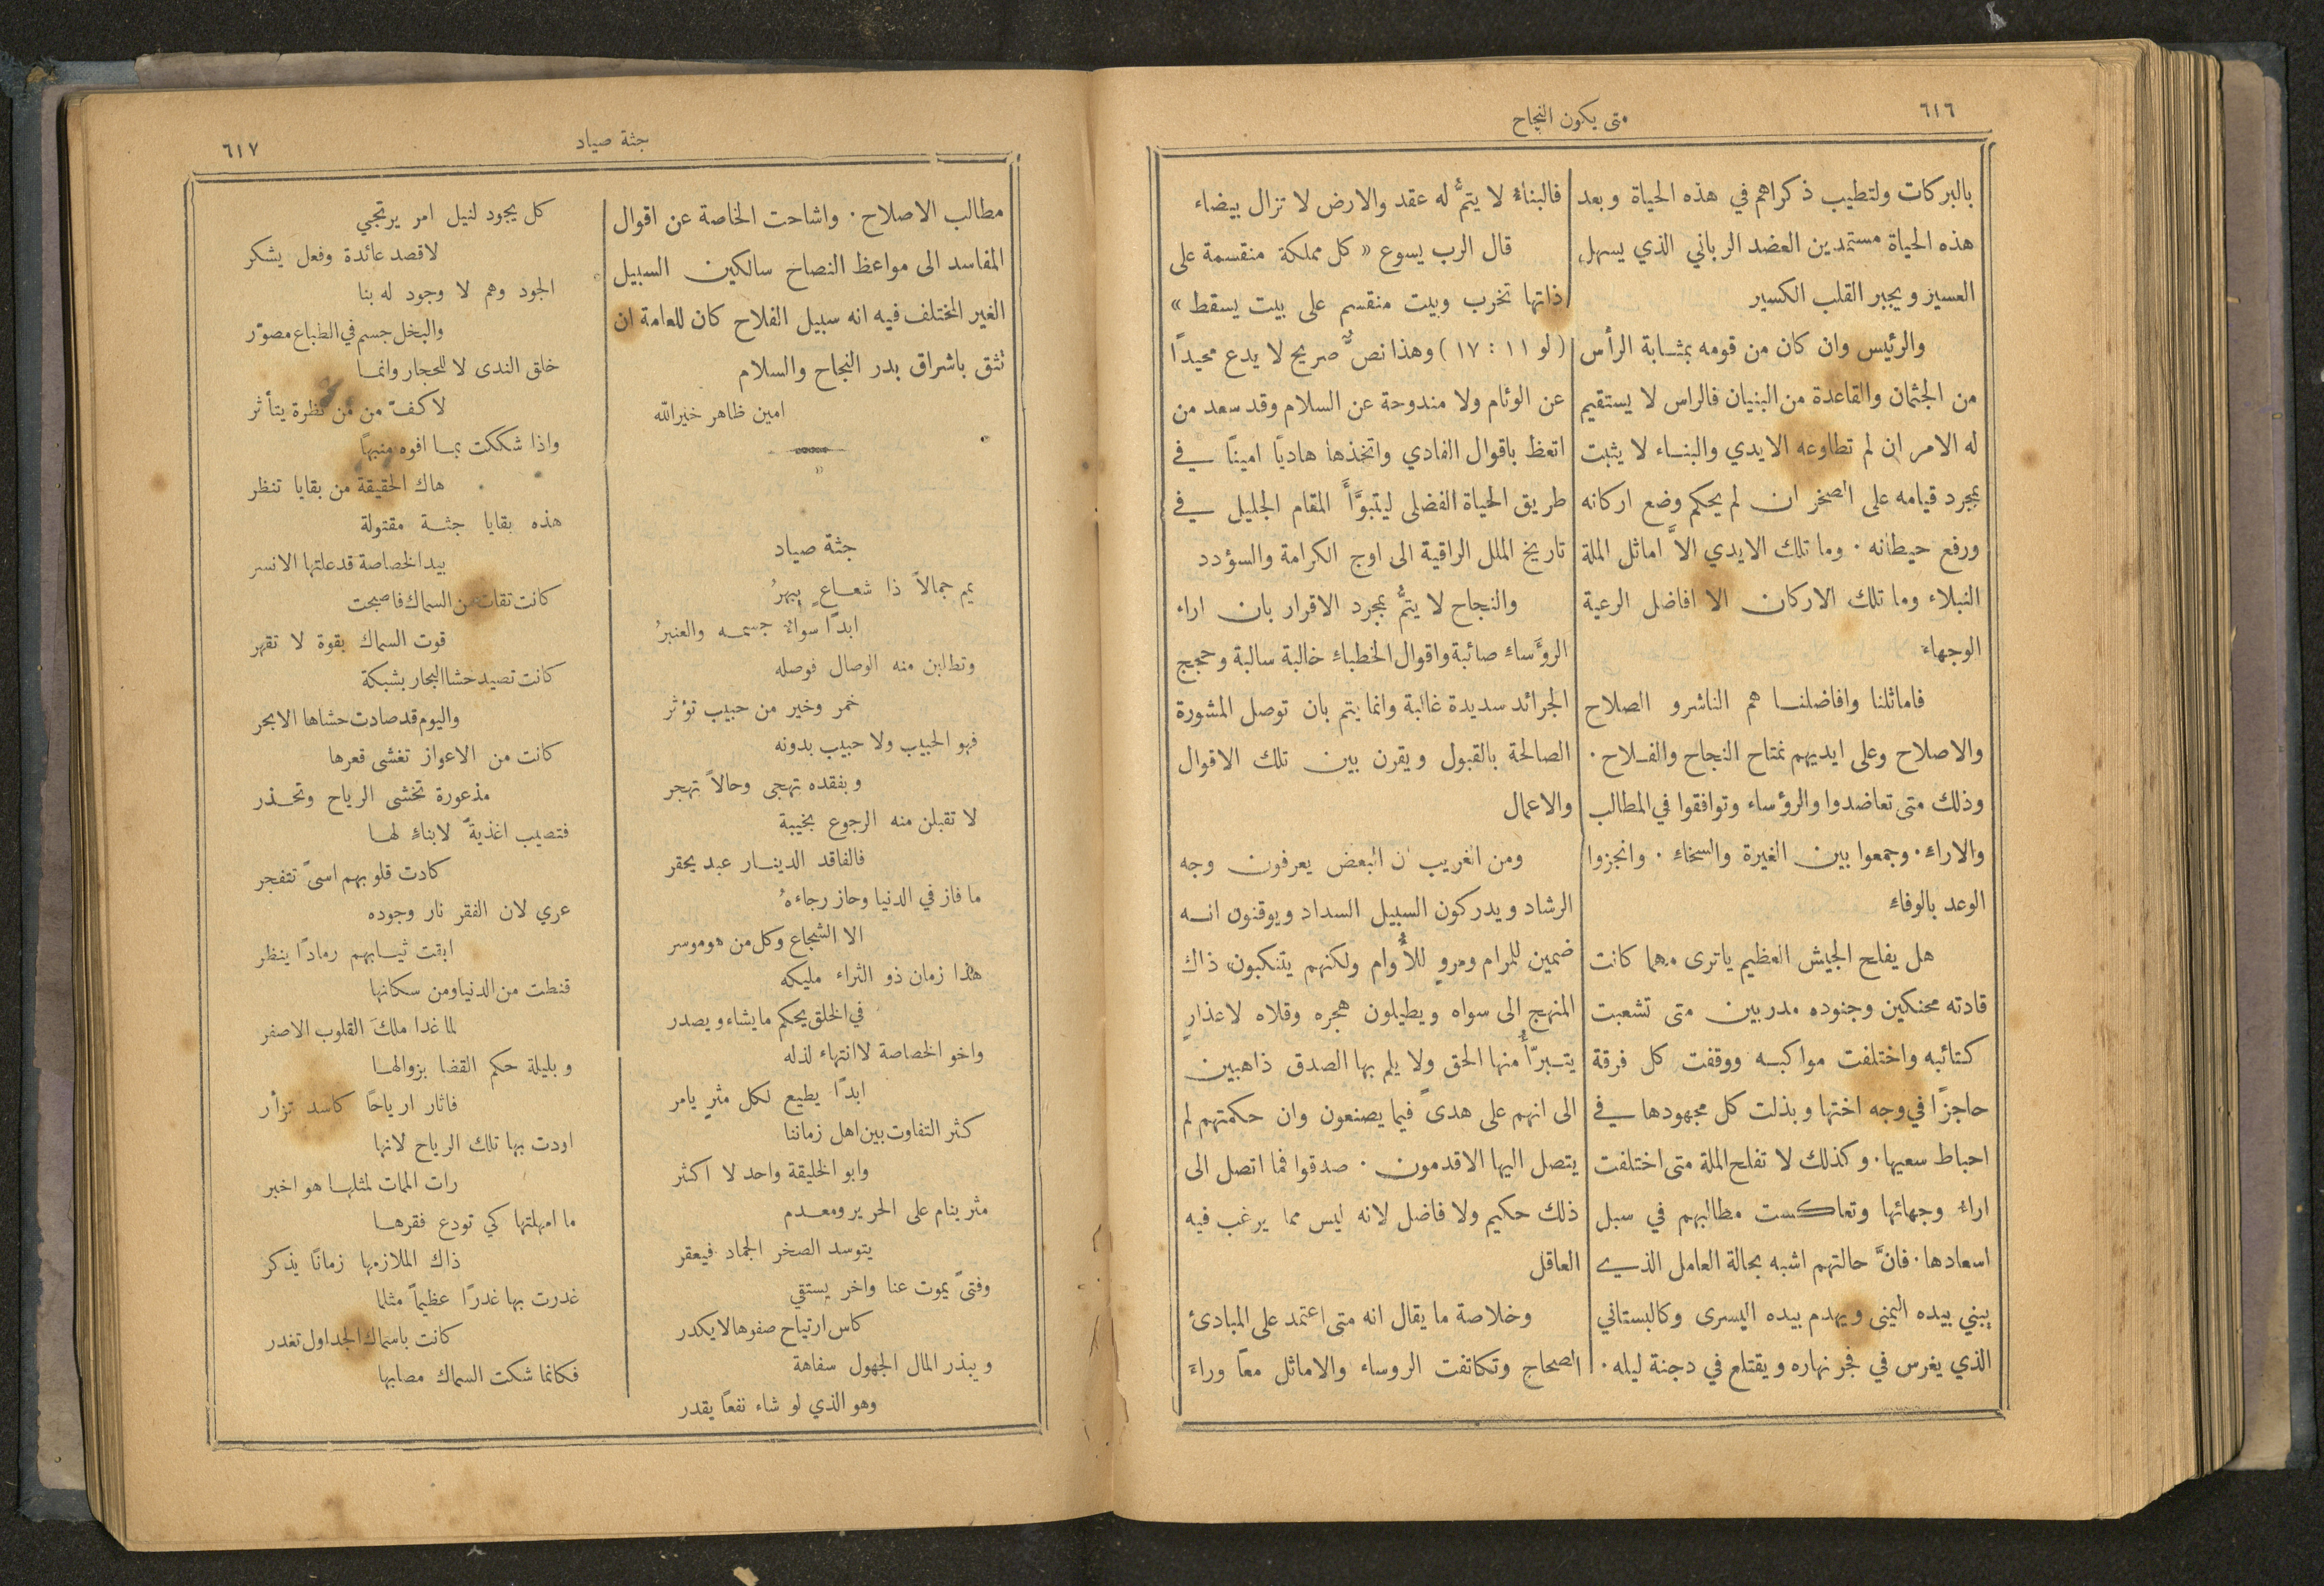 ٦١٦
متى يكون النجاح
بالبركات ولتطيب ذكراهم في هذه الحياة وبعد
هذه الحياة مستمدين العضد الرباني الذي يسهل
العسير ويجبر القلب الكسير
والرئيس وان كان من قومه بمثابة الرأس
من الجثمان والقاعدة من البنيان فالراس لا يستقيم
له الامر ان لم تطاوعه الايدي والبناء لا يثبت
بمجرد قيامه على الصخر ان لم يحكم وضع اركانه
ورفع حيطانه . وما تلك الايدي الاَّ اماثل الملة
النبلاء وما تلك الاركان الا افاضل الرعية
الوجهاء
فاماثلنا وافاضلنا هم الناشرو الصلاح
والاصلاح وعلى ايديهم نمتاح النجاح والفلاح .
وذلك متى تعاضدوا والرؤساء وتوافقوا في المطالب
والاراء . وجمعوا بين الغيرة والسخاء . وانجزوا
الوعد بالوفاء
هل يفلح الجيش العظيم ياترى مهما كانت
قادته محنكين وجنوده مدربين متى تشعبت
كتائبه واختلفت مواكبه ووقفت كل فرقة
حاجزًا في وجه اختها وبذلت كل مجهودها في
احباط سعيها . وكذلك لا تفلح الملة متى اختلفت
اراء وجهائها وتعاكست مطالبهم في سبل
اسعادها . فانَّ حالتهم اشبه بحالة العامل الذي
يبني بيده اليمنى ويهدم بيده اليسرى وكالبستاني
الذي يغرس في فجر نهاره ويقتلع في دجنة ليله .
فالبناء لا يتمُّ له عقد والارض لا تزال بيضاء
قال الرب يسوع « كل مملكة منقسمة على
ذاتها تخرب وبيت منقسم على بيت يسقط »
( لو ١١ : ١٧ ) وهذا نصٌّ صريح لا يدع محيدًا
عن الوئام ولا مندوحة عن السلام وقد سعد من
اتعظ باقوال الفادي واتخذها هاديًا امينًا في
طريق الحياة الفضلى ليتبوَّأَ المقام الجليل في
تاريخ الملل الراقية الى اوج الكرامة والسؤدد
والنجاح لا يتمُّ بمجرد الاقرار بان اراء
الروَّساء صائبة واقوال الخطباء خالبة سالبة وحجج
الجرائد سديدة غالبة وانما يتم بان توصل المشورة
الصالحة بالقبول ويقرن بين تلك الاقوال
والاعمال
ومن الغريب ان البعض يعرفون وجه
الرشاد ويدركون السبيل السداد ويوقنون انه
ضمين للمرام ومروٍ للأُوام ولكنهم يتنكبون ذاك
المنهج الى سواه ويطيلون هجره وقلاه لاعذارٍ
يتبرّأُ منها الحق ولا يلم بها الصدق ذاهبين
الى انهم على هدىً فيما يصنعون وان حكمتهم لم
يتصل اليها الاقدمون . صدقوا فما اتصل الى
ذلك حكيم ولا فاضل لانه ليس مما يرغب فيه
العاقل
وخلاصة ما يقال انه متى اعتمد على المبادئ
الصحاح وتكاتفت الروساء والاماثل معًا وراء
جثة صياد
٦١٧
مطالب الاصلاح . واشاحت الخاصة عن اقوال
المفاسد الى مواعظ النصاح سالكين السبيل
الغير المختلف فيه انه سبيل الفلاح كان للعامة ان
تثق باشراق بدر النجاح والسلام
امين ظاهر خيرالله
جثة صياد
يم جمالاً ذا شعاعٍ يبهرُ
ابدًا سواء جسمه والعنبرُ
وتطلبن منه الوصال فوصله
خمر وخير من حبيب تؤثر
فهو الحبيب ولا حبيب بدونه
وبفقده تهجى وحالاً تهجر
لا تقبلن منه الرجوع بخيبة
فالفاقد الدينار عبد يحقر
ما فاز في الدنيا وحاز رجاءهُ
الا الشجاع وكل من هو موسر
هذا زمان ذو الثراء مليكه
في الخلق يحكم ما يشاء ويصدر
واخو الخصاصة لا انتهاء لذله
ابدًا يطيع لكل مثرٍ يامر
كثر التفاوت بين اهل زماننا
وابو الخليقة واحد لا اكثر
مثر ينام على الحرير ومعدم
يتوسد الصخر الجماد فيعقر
وفتىً يموت عنا واخر يستقي
كاس ارتياح صفوها لا يكدر
ويبذر المال الجهول سفاهة
وهو الذي لو شاء نفعًا يقدر
كل يجود لنيل امر يرتجي
لا قصد عائدة وفعل يشكر
الجود وهم لا وجود له بنا
والبخل جسم في الطباع مصوّر
خلق الندى لا للحجار وانما
لاكفّ من من نظرة يتأثر
واذا شككت بما افوه منبهًا
هاك الحقيقة من بقايا تنظر
هذه بقايا جثة مقتولة
بيد الخصاصة قد علتها الانسر
كانت تقات من السماك فاصبحت
قوت السماك بقوة لا تقهر
كانت تصيد حشا البحار بشبكة
واليوم قد صادت حشاها الابحر
كانت من الاعواز تغشى قعرها
مذعورة تخشى الرياح وتحذر
فتصيب اغذيةً لابناءٍ لها
كادت قلوبهم اسىً تتفجر
عري لان الفقر نار وجوده
ابقت ثيابهم رمادًا ينظر
قنطت من الدنيا ومن سكانها
لما غدا ملكَ القلوب الاصفر
وبليلة حكم القضا بزوالها
فاثار ارياحًا كاسد تزأر
اودت بها تلك الرياح لانها
رات الممات لمثلها هو اخير
ما امهلتها كي تودع فقرها
ذاك الملازمها زمانًا يذكر
غدرت بها غدرًا عظيمًا مثلما
كانت باسماك الجداول تغدر
فكانما شكت السماك مصابها